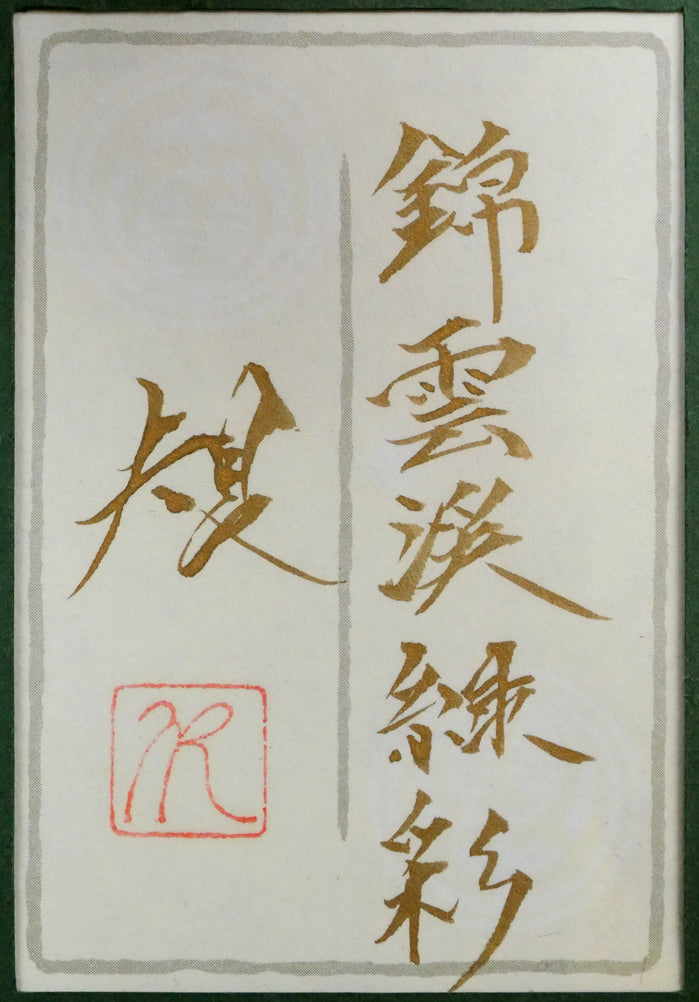 錦雲渓緑彩
規